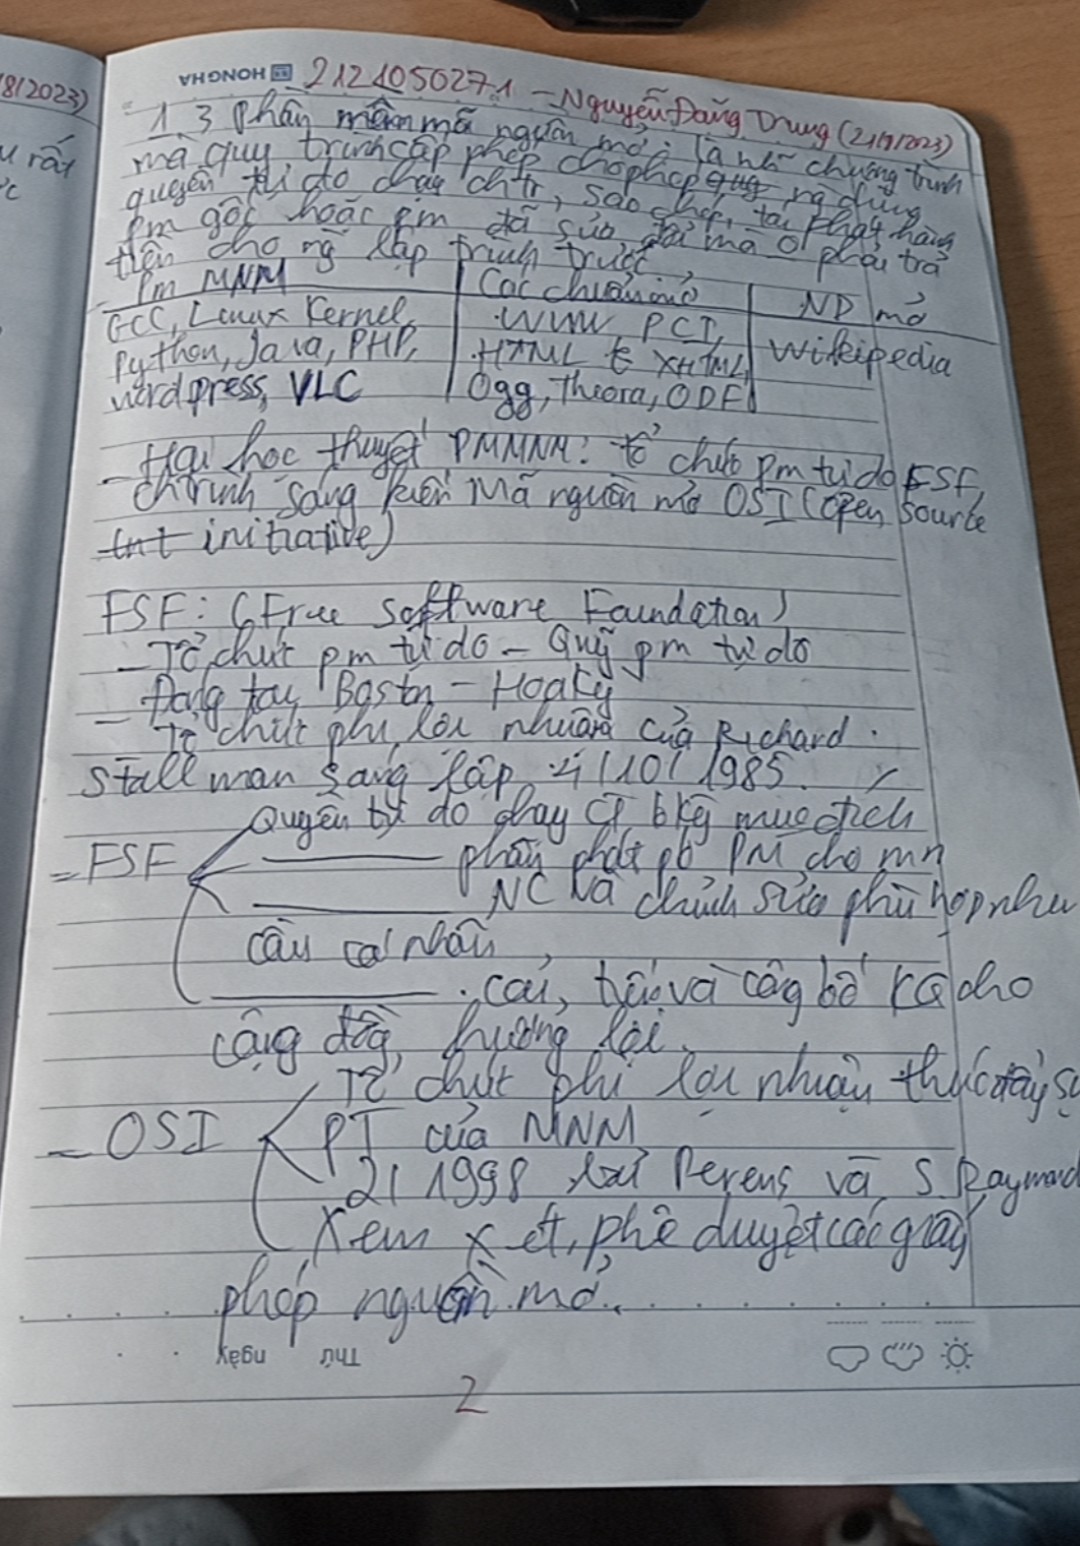 8/2023)
u rất
HONG HA 2121050271 - Nguyễn Đăng Trung (21/9/2023)
1 3 Phần mềm mã nguồn mở: là nh~ chương trình
mà quy trình cấp phép cho phép ng dùng
quyền tự do chạy chtr, sao chép, tái phát hành
pm gốc hoặc pm đã sửa đổi mà 0 phải trả
tiền cho ng lập trình trước.
- Pm MNM | Các chuẩn mở | ND mở
GCC, Linux Kernel, | WWW, PCI, | Wikipedia
Python, Java, PHP, | HTML & XHTML,
Wordpress, VLC | Ogg, Theora, ODF
- Hai học thuyết PMMNM: tổ chức pm tự do FSF,
chtrình sáng kiến Mã nguồn mở OSI (Open Source
Int initiative)
FSF: (Free Software Foundation)
- Tổ chức pm tự do - Quỹ pm tự do
- Đang tại Boston - Hoa Kỳ
- Tổ chức phi lợi nhuận của Richard
Stallman sáng lập 4/10/1985.
- FSF Quyền tự do chạy CT, bkỳ mục đích
phân phát pb PM cho mn
NC và chỉnh sửa phù hợp nhu
cầu cá nhân
cải, tiến và công bố KQ cho
cộng đồng hưởng lợi.
Tổ chức phi lợi nhuận thúc đẩy sự
- OSI PT của MNM
2/1998 bởi Perens và S. Raymond
Xem xét, phê duyệt các giấy
phép nguồn mở.
Thứ Ngày
2